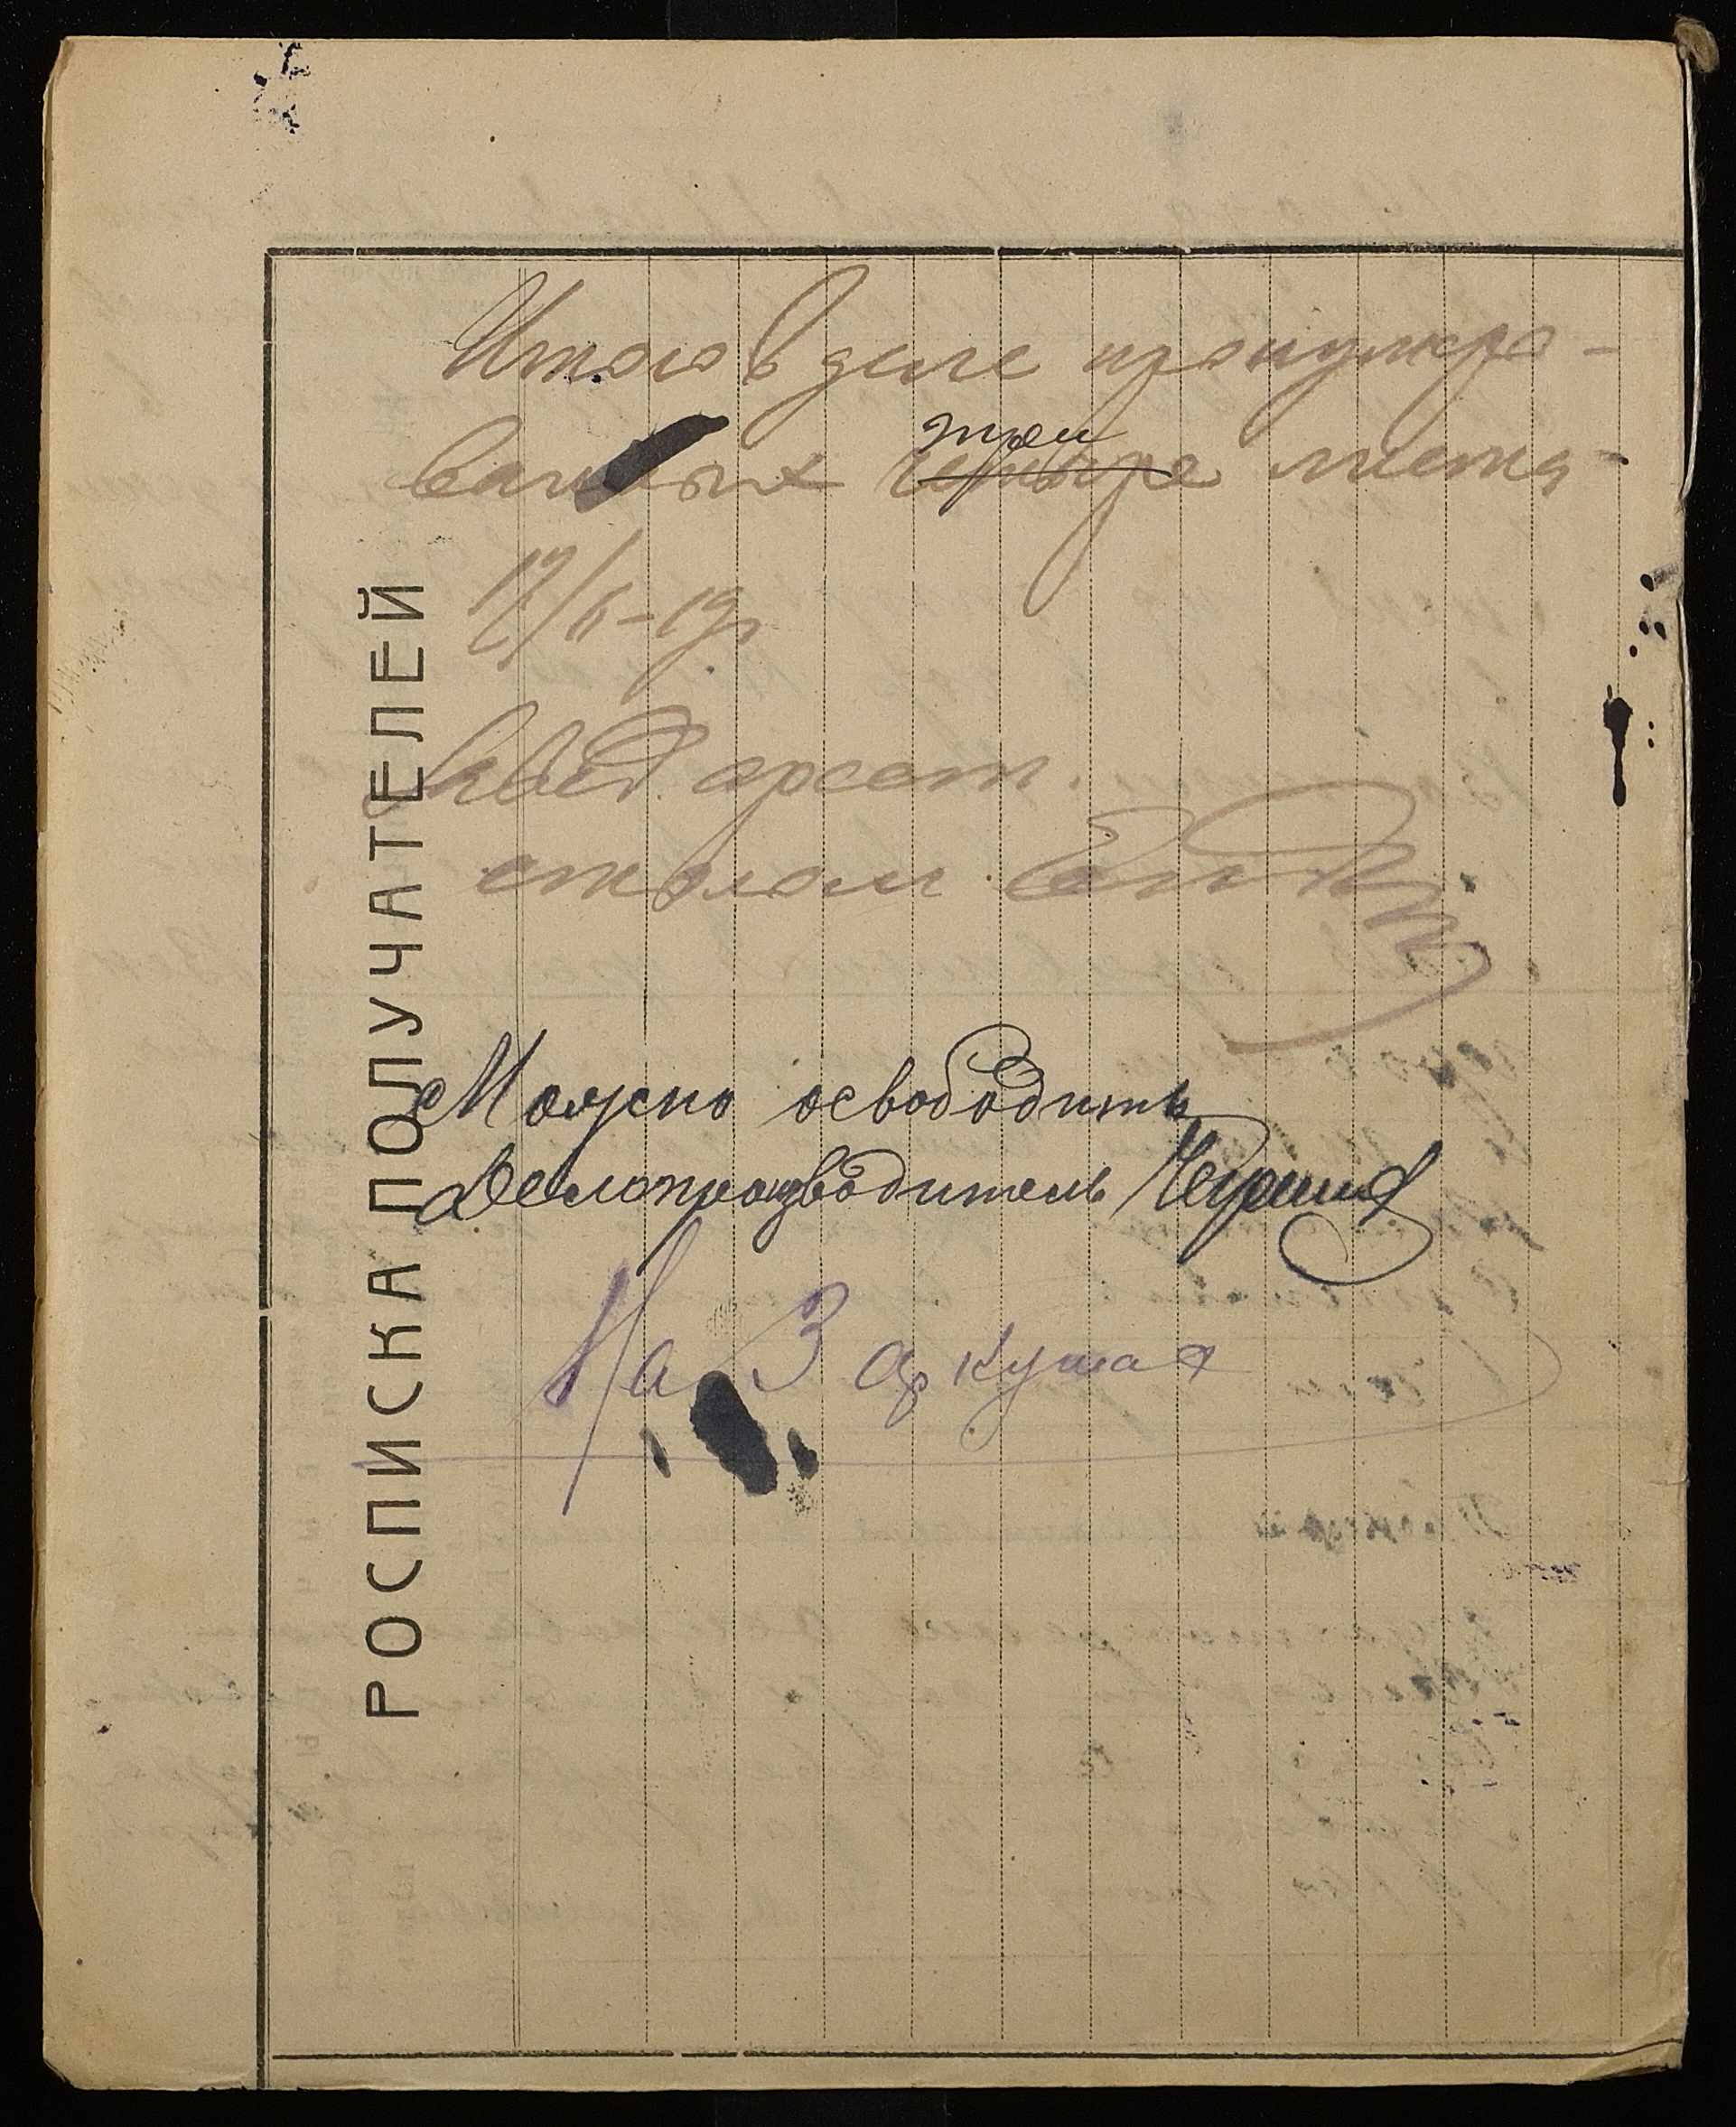 РОСПИСКА ПОЛУЧАТЕЛЕЙ
Итого в деле пронумеро-
три
ванных четыре листа
Завед. арест.
столом
Можно освободить
Делопроизводитель
На 3 аркушах